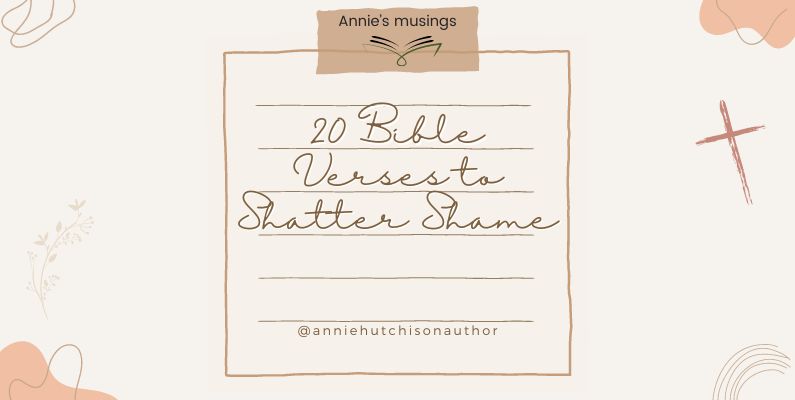 Annie's musings
20 Bible
Verses to
Shatter Shame
@anniehutchisonauthor